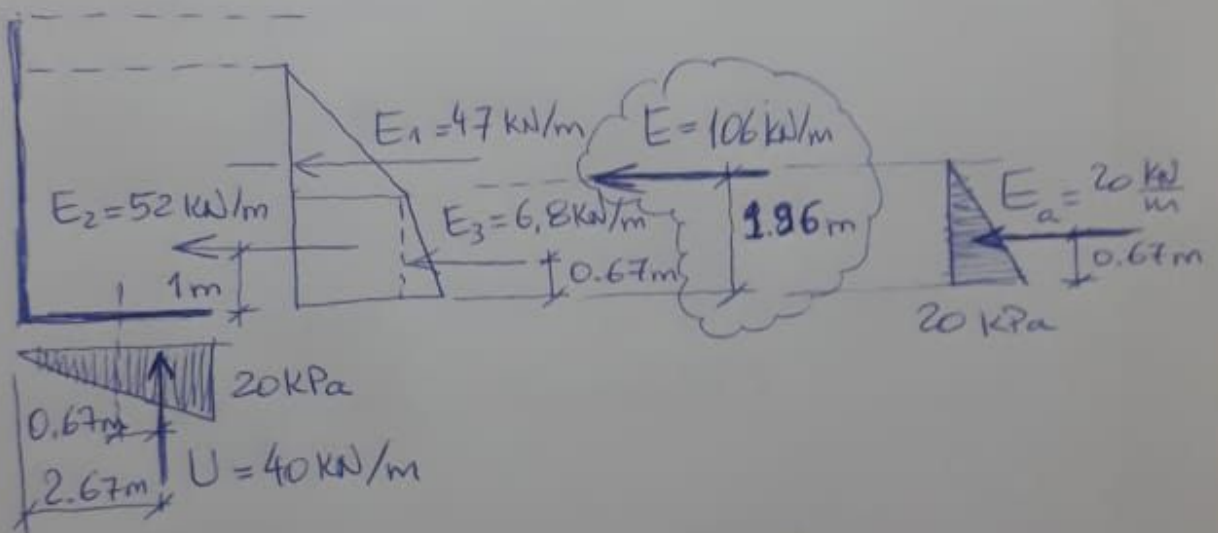 E1 = 47 kN/m
E = 106 kN/m
E2 = 52 kN/m
E3 = 6,8 kN/m
1.96 m
Ea = 20 kN/m
1m
0.67m
0.67m
20 kPa
20 kPa
0.67m
U = 40 kN/m
2.67m